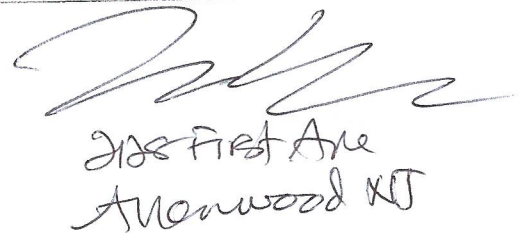 2128 First Ave
Allenwood NJ